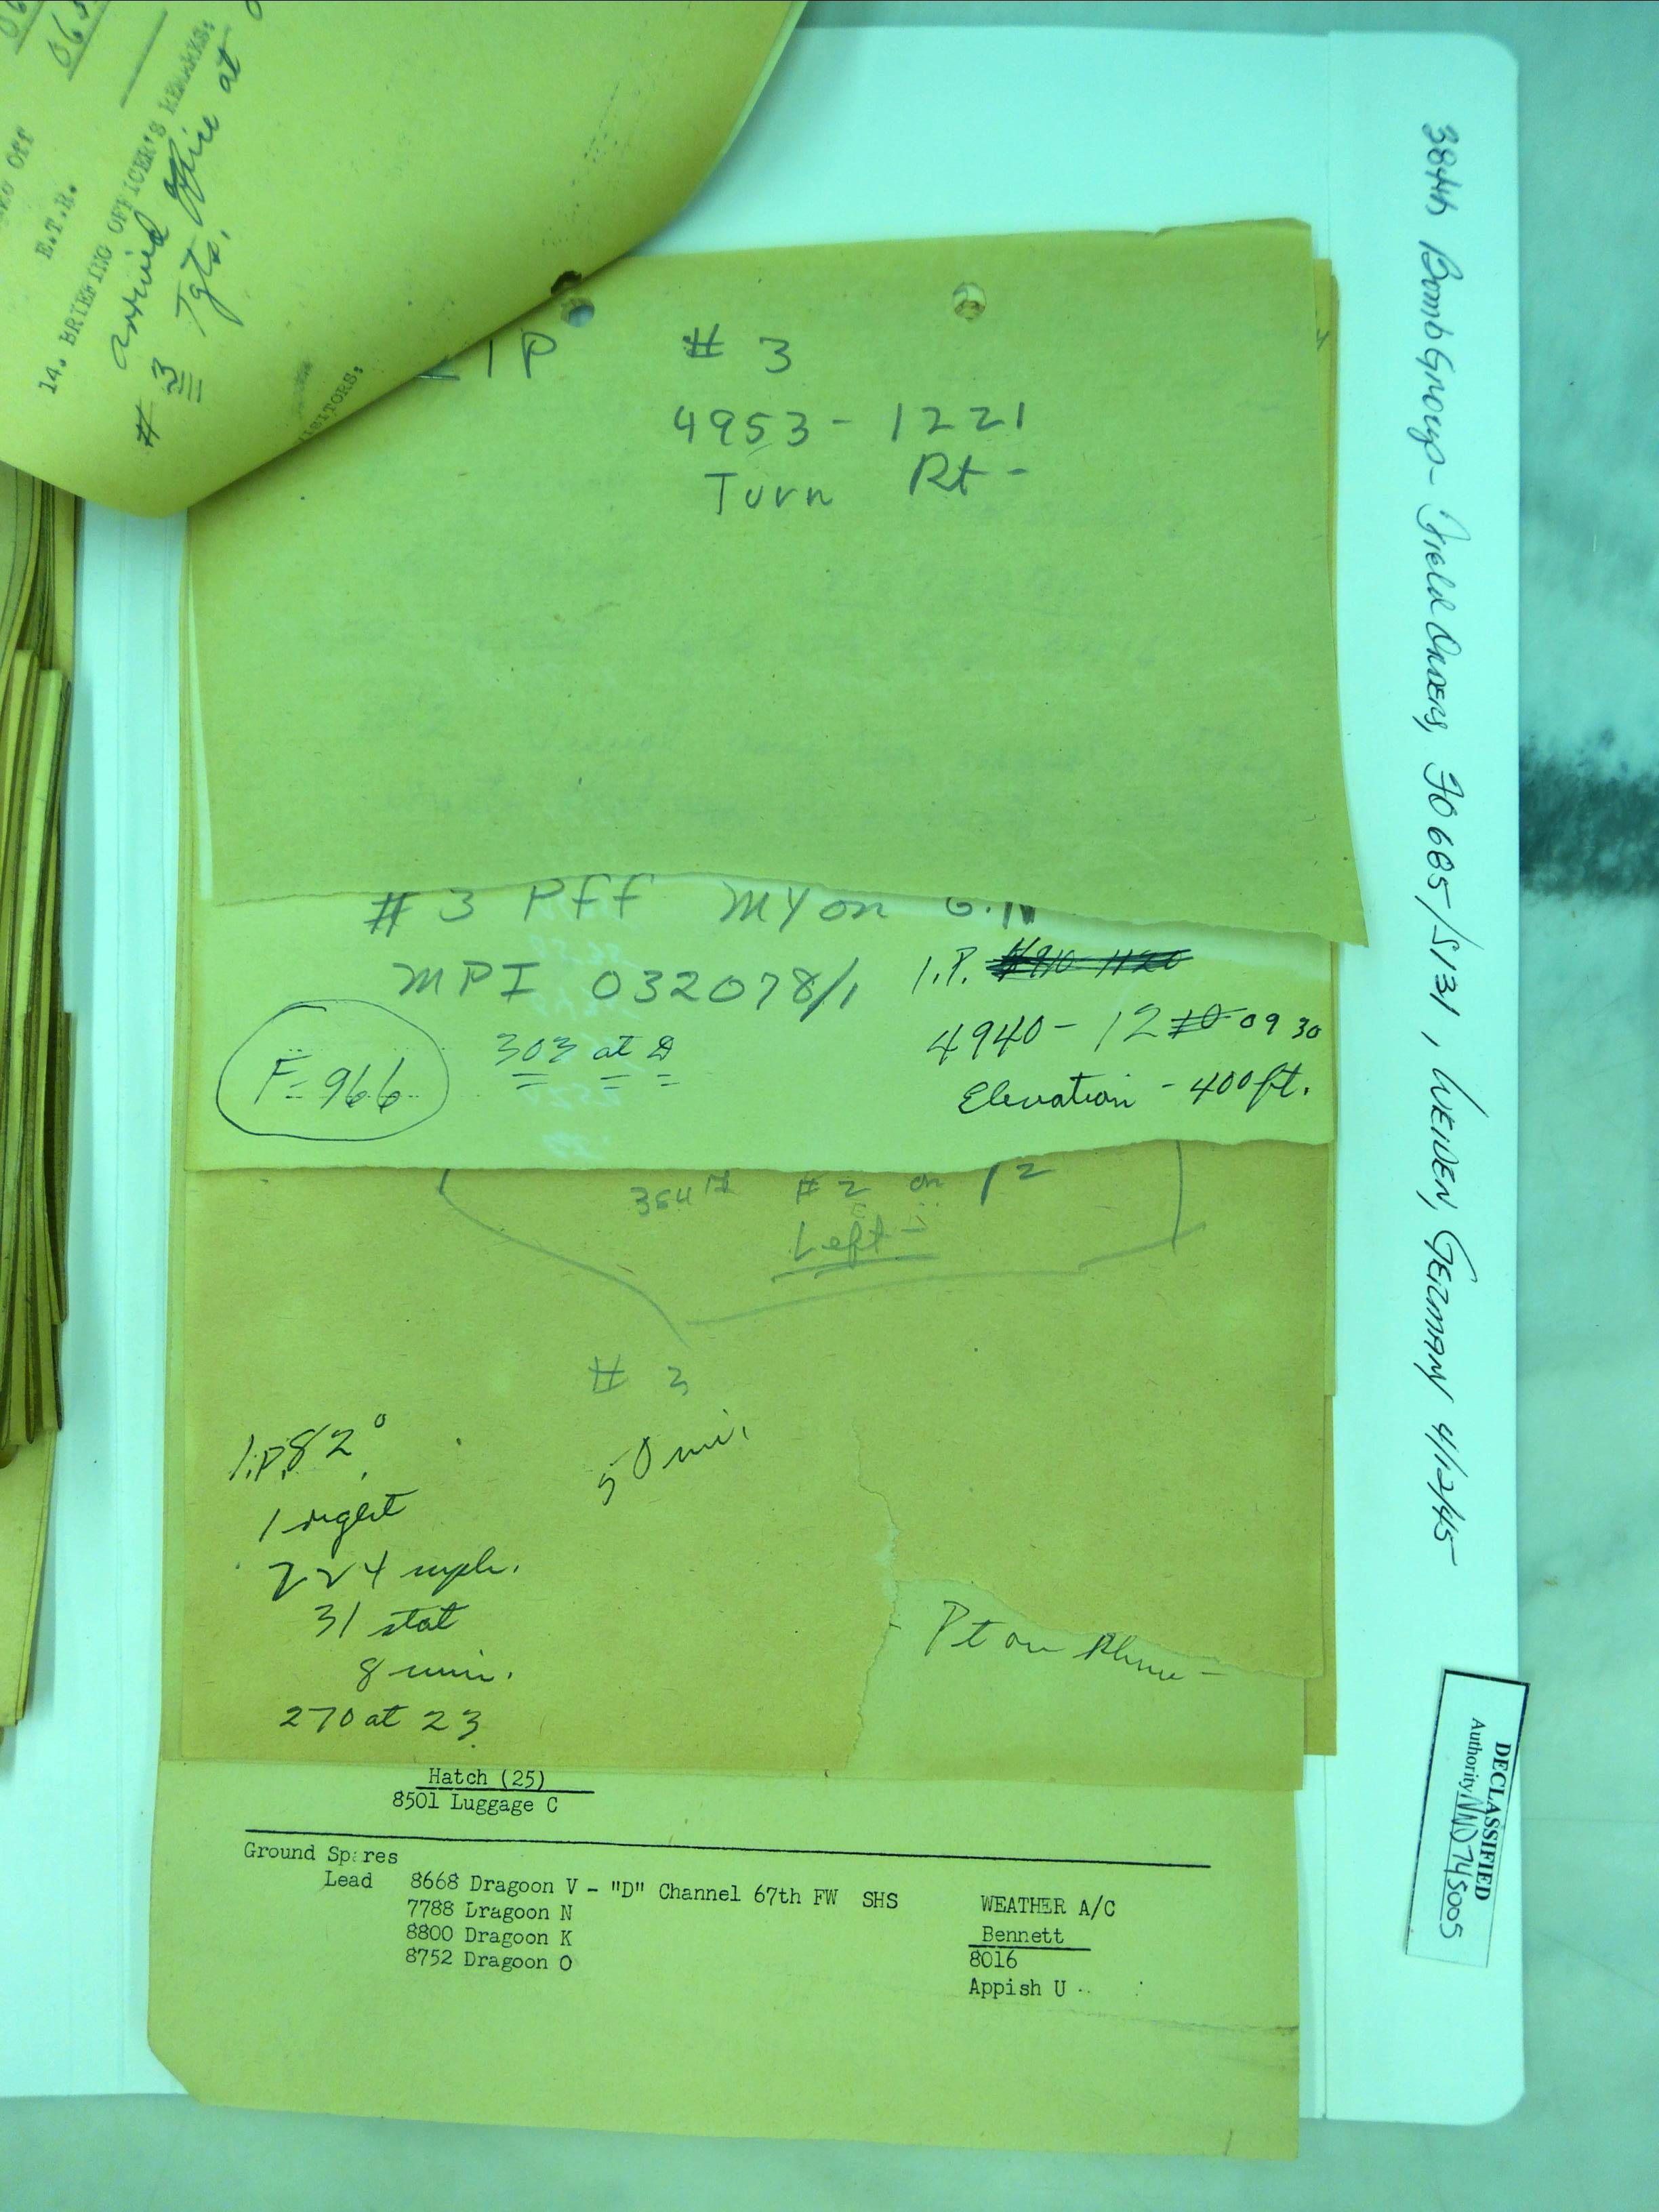 E.T.R.
14. BRIEFING OFFICER'S REMARKS:
arrived Office at
# 3 Tgts.
IP # 3
4953 - 1221
Turn Rt -
# 3 PFF MY on
MPI 032078/1
I.P. 4910 1120
4940 - 12 10 09 30
Elevation - 400 ft.
F = 966
303 at D
384th # 2 on 12
Left -
# 3
50 mi.
I.P. 82°
1 right
224 mph.
31 stat
8 min.
270 at 23
- Pt on Rhine -
Hatch (25)
8501 Luggage C
Ground Spares
Lead 8668 Dragoon V - "D" Channel 67th FW SHS
7788 Dragoon N
8800 Dragoon K
8752 Dragoon O
WEATHER A/C
Bennett
8016
Appish U
384th Bomb Group - Field Orders, FO 685/S131, WEIDEN, GERMANY 4/12/45
DECLASSIFIED
Authority NND 745005